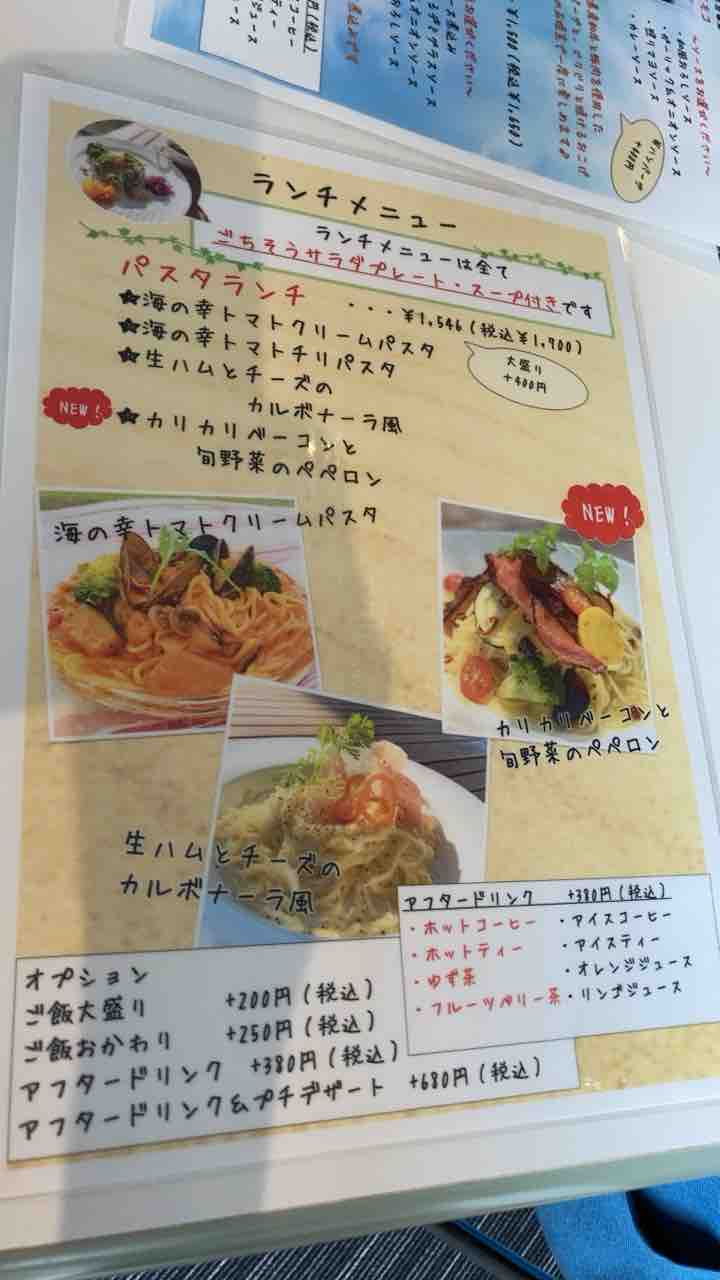 円(税込)
・¥1,500(税込¥1,650)
～ソースをお選びください～
・和風おろしソース
・ガーリック&オニオンソース
・盛りマヨソース
・カレーソース
ランチメニュー
ランチメニューは全て
ごちそうサラダプレート・スープ付きです
パスタランチ ・・・¥1,546(税込¥1,700)
★海の幸トマトクリームパスタ
★海の幸トマトチリパスタ
★生ハムとチーズの
カルボナーラ風
大盛り
+400円
NEW!
★カリカリベーコンと
旬野菜のペペロン
海の幸トマトクリームパスタ
NEW!
カリカリベーコンと
旬野菜のペペロン
生ハムとチーズの
カルボナーラ風
アフタードリンク +380円(税込)
・ホットコーヒー ・アイスコーヒー
・ホットティー ・アイスティー
・ゆず茶 ・オレンジジュース
・フルーツベリー茶 ・リンゴジュース
オプション
ご飯大盛り +200円(税込)
ご飯おかわり +250円(税込)
アフタードリンク +380円(税込)
アフタードリンク&プチデザート +680円(税込)